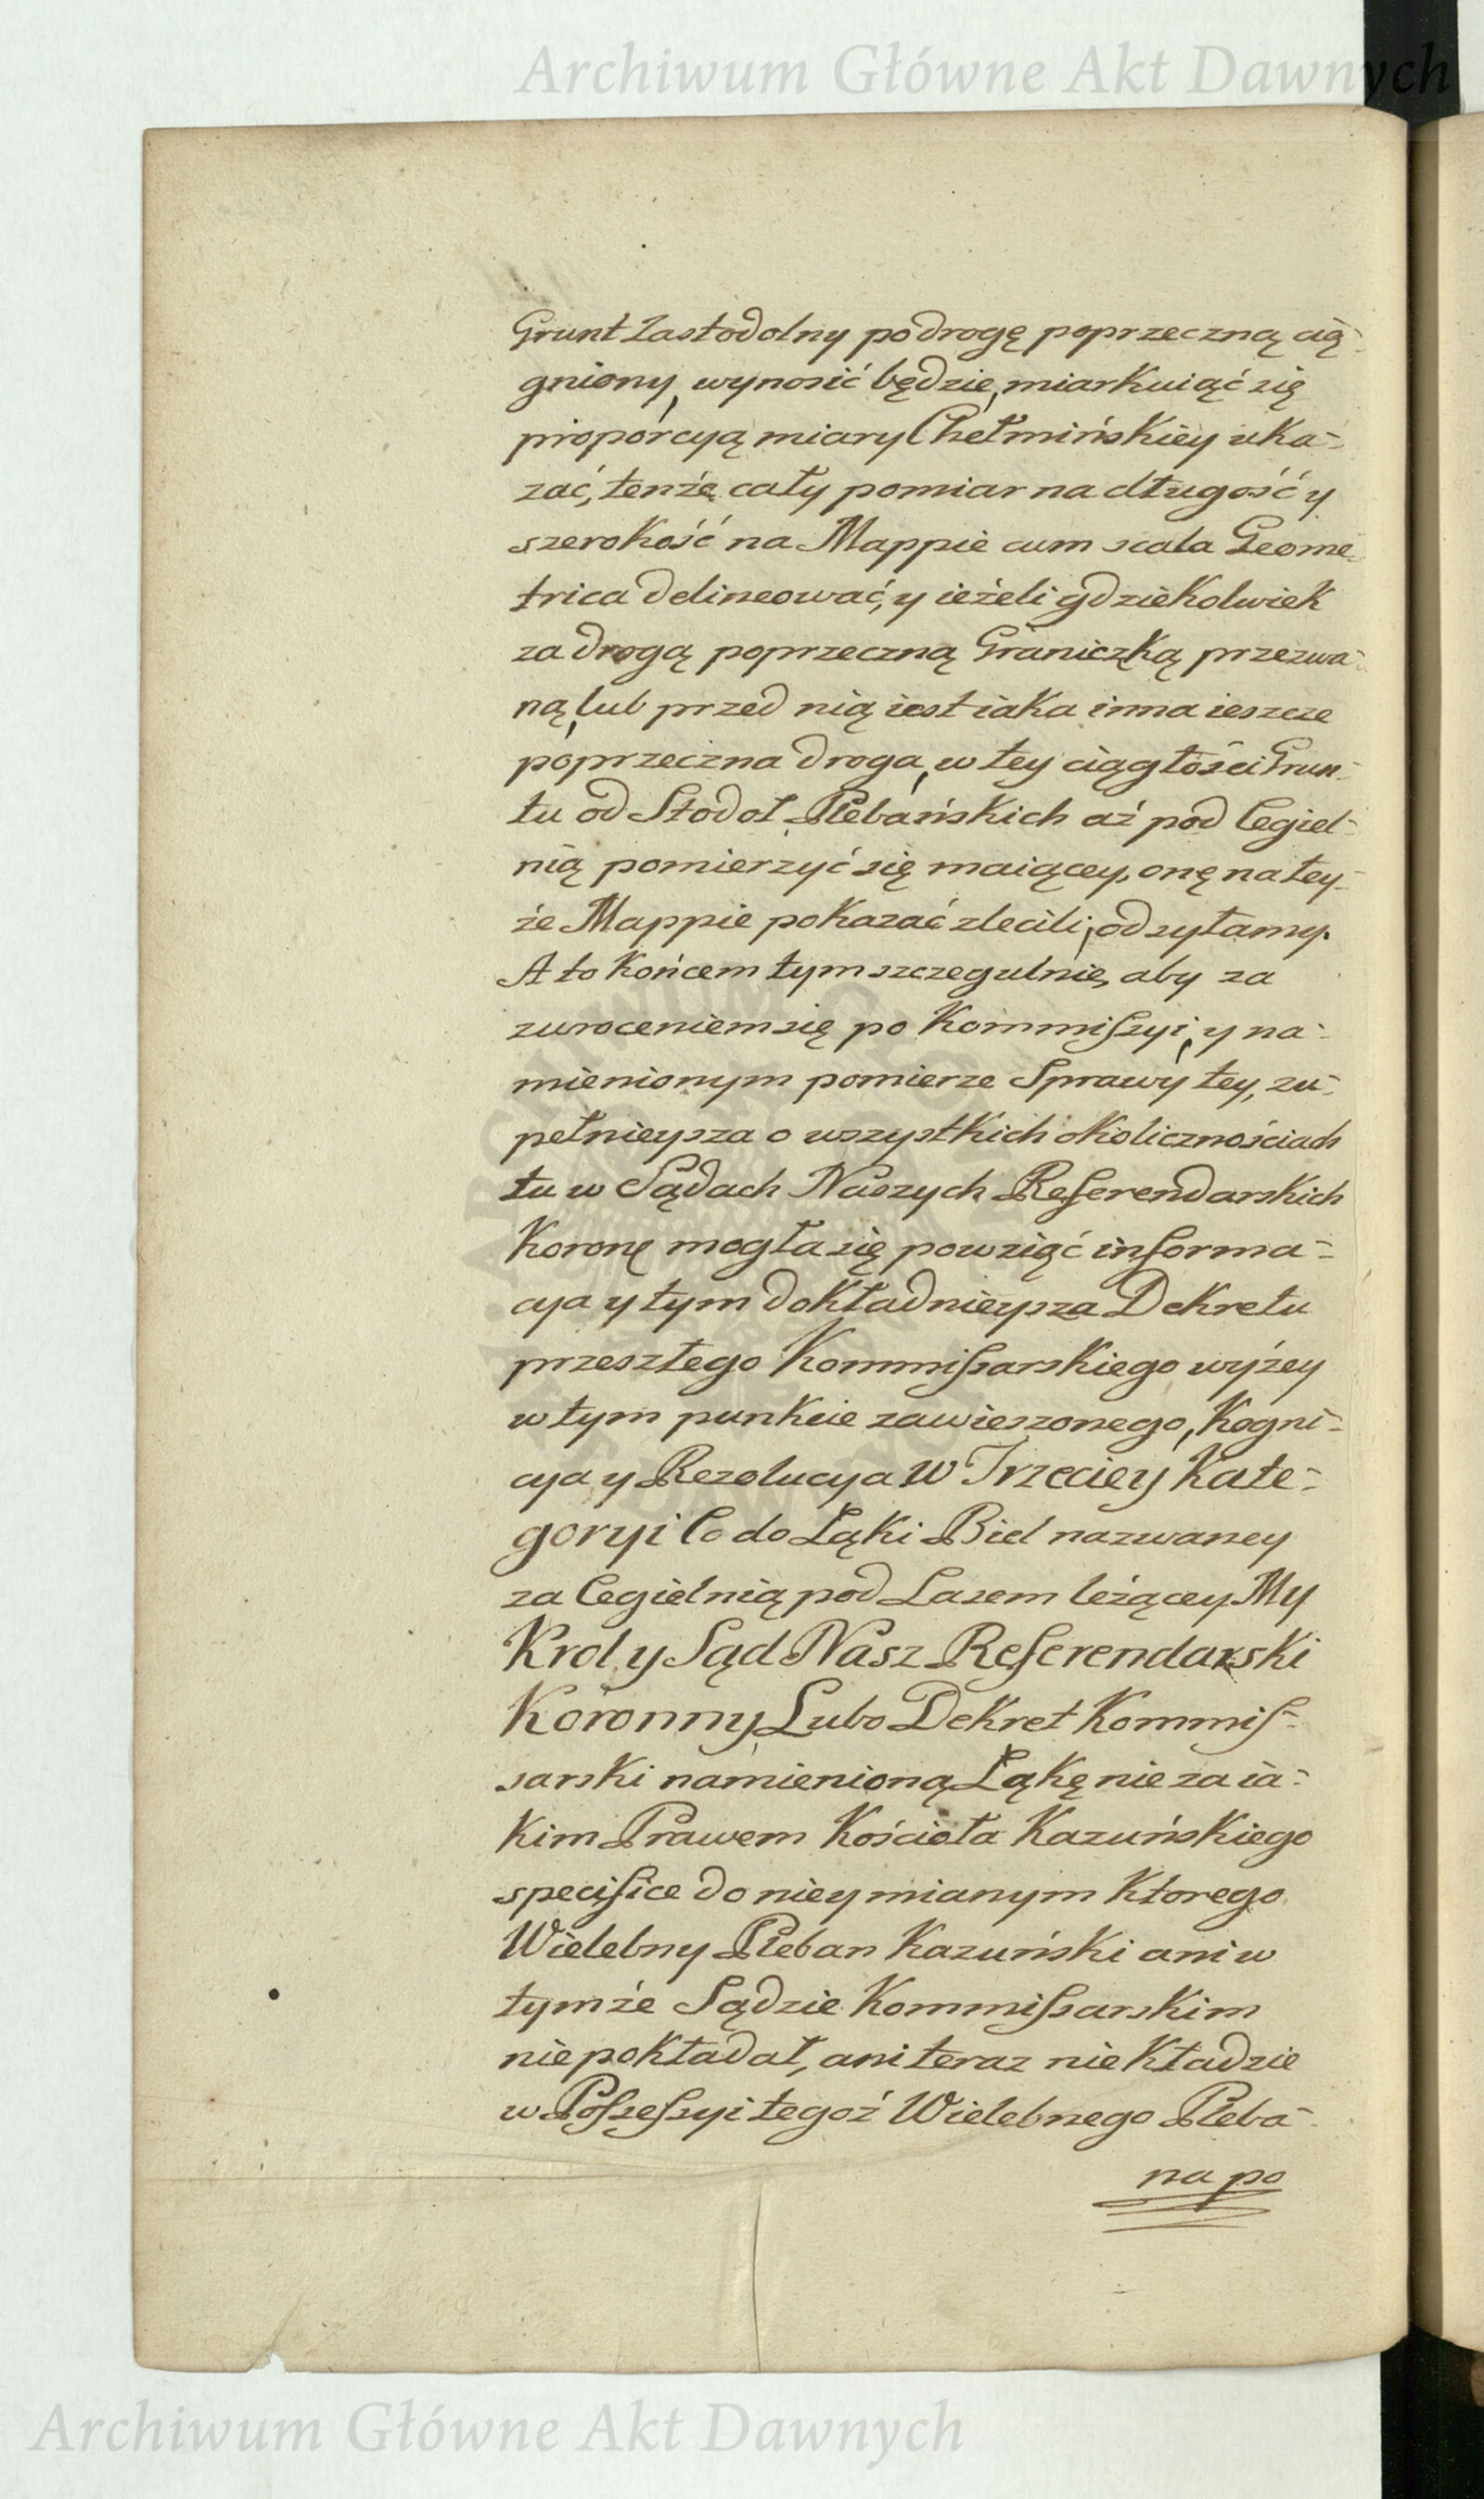 Archiwum Główne Akt Dawnych
Grunt Zastodolny po drogę poprzeczną cią-
gniony, wynosić będzie, miarkuiąć się
proporcyą miary Chełmińskiey uka-
zać, tenże cały pomiar na długość y
szerokość na Mappie cum scala Geome-
trica delineować, y ieżeli gdziekolwiek
za drogą poprzeczną Graniczką przezwa-
ną, lub przed nią iest iaka inna ieszcze
poprzeczna droga, w tey ciągłości Grun-
tu od Stodoł Plebańskich aż pod Cegiel-
nią pomierzyć się maiącey, onę na tey-
że Mappie pokazać zlecili, odsyłamy.
A to końcem tym szczegulnie, aby za
zwroceniem się po Kommissyi, y na-
mienionym pomierze Sprawy tey, zu-
pełnieysza o wszystkich okolicznościach
tu w Sądach Naszych Referendarskich
Koronę mogła się powziąć informa-
cya y tym dokładnieysza Dekretu
przeszłego Kommissarskiego wyżey
w tym punkcie zawieszonego, Kogni-
cya y Rezolucya W Trzeciey Kate-
goryi Co do Łąki Biel nazwaney
za Cegielnią pod Lasem leżącey My
Krol y Sąd Nasz Referendarski
Koronny Lubo Dekret Kommis-
sarski namienioną Łąkę nie za ia-
kim Prawem Kościoła Kazuńskiego
specifice do niey mianym ktorego
Wielebny Pleban Kazuński ani w
tymże Sądzie Kommissarskim
nie pokładał, ani teraz nie kładzie
w Possessyi tegoż Wielebnego Pleba-
na po
Archiwum Główne Akt Dawnych